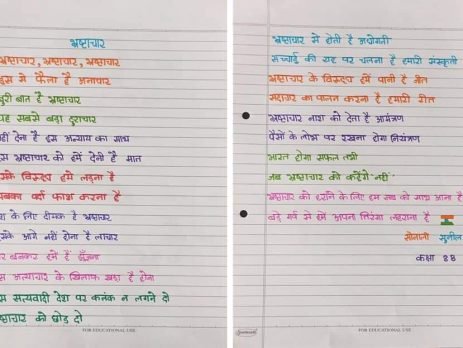 भ्रष्टाचार
भ्रष्टाचार, भ्रष्टाचार, भ्रष्टाचार
फैला है अनाचार
बुरी बात है भ्रष्टाचार
यह सबसे बड़ा दुराचार
नहीं देना है इस अन्याय का साथ
भ्रष्टाचार को हमें देनी है मात
इसके विरुद्ध हमें लड़ना है
सबका पर्दा फाश करना है
के लिए दीमक है भ्रष्टाचार
इसके आगे नहीं होना है लाचार
बनकर हमें है
अत्याचार के खिलाफ खड़ा है होना
सत्यवादी देश पर कलंक न लगने दो
भ्रष्टाचार को छोड़ दो
FOR EDUCATIONAL USE
भ्रष्टाचार से होती है अधोगती
सच्चाई की राह पर चलना है हमारी संस्कृती
भ्रष्टाचार के विरुद्ध हमें पानी है जीत
सदाचार का पालन करना है हमारी रीत
भ्रष्टाचार नाश को देता है आमंत्रण
पैसों के लोभ पर रखना होगा नियंत्रण
भारत होगा सफल तभी
जब भ्रष्टाचार को करेंगे 'नहीं'
भ्रष्टाचार को हराने के लिए हम सब को साथ आना है
बड़े गर्व से हमें अपना तिरंगा लहराना है
सोनाली सुनील
कक्षा 8B
FOR EDUCATIONAL USE